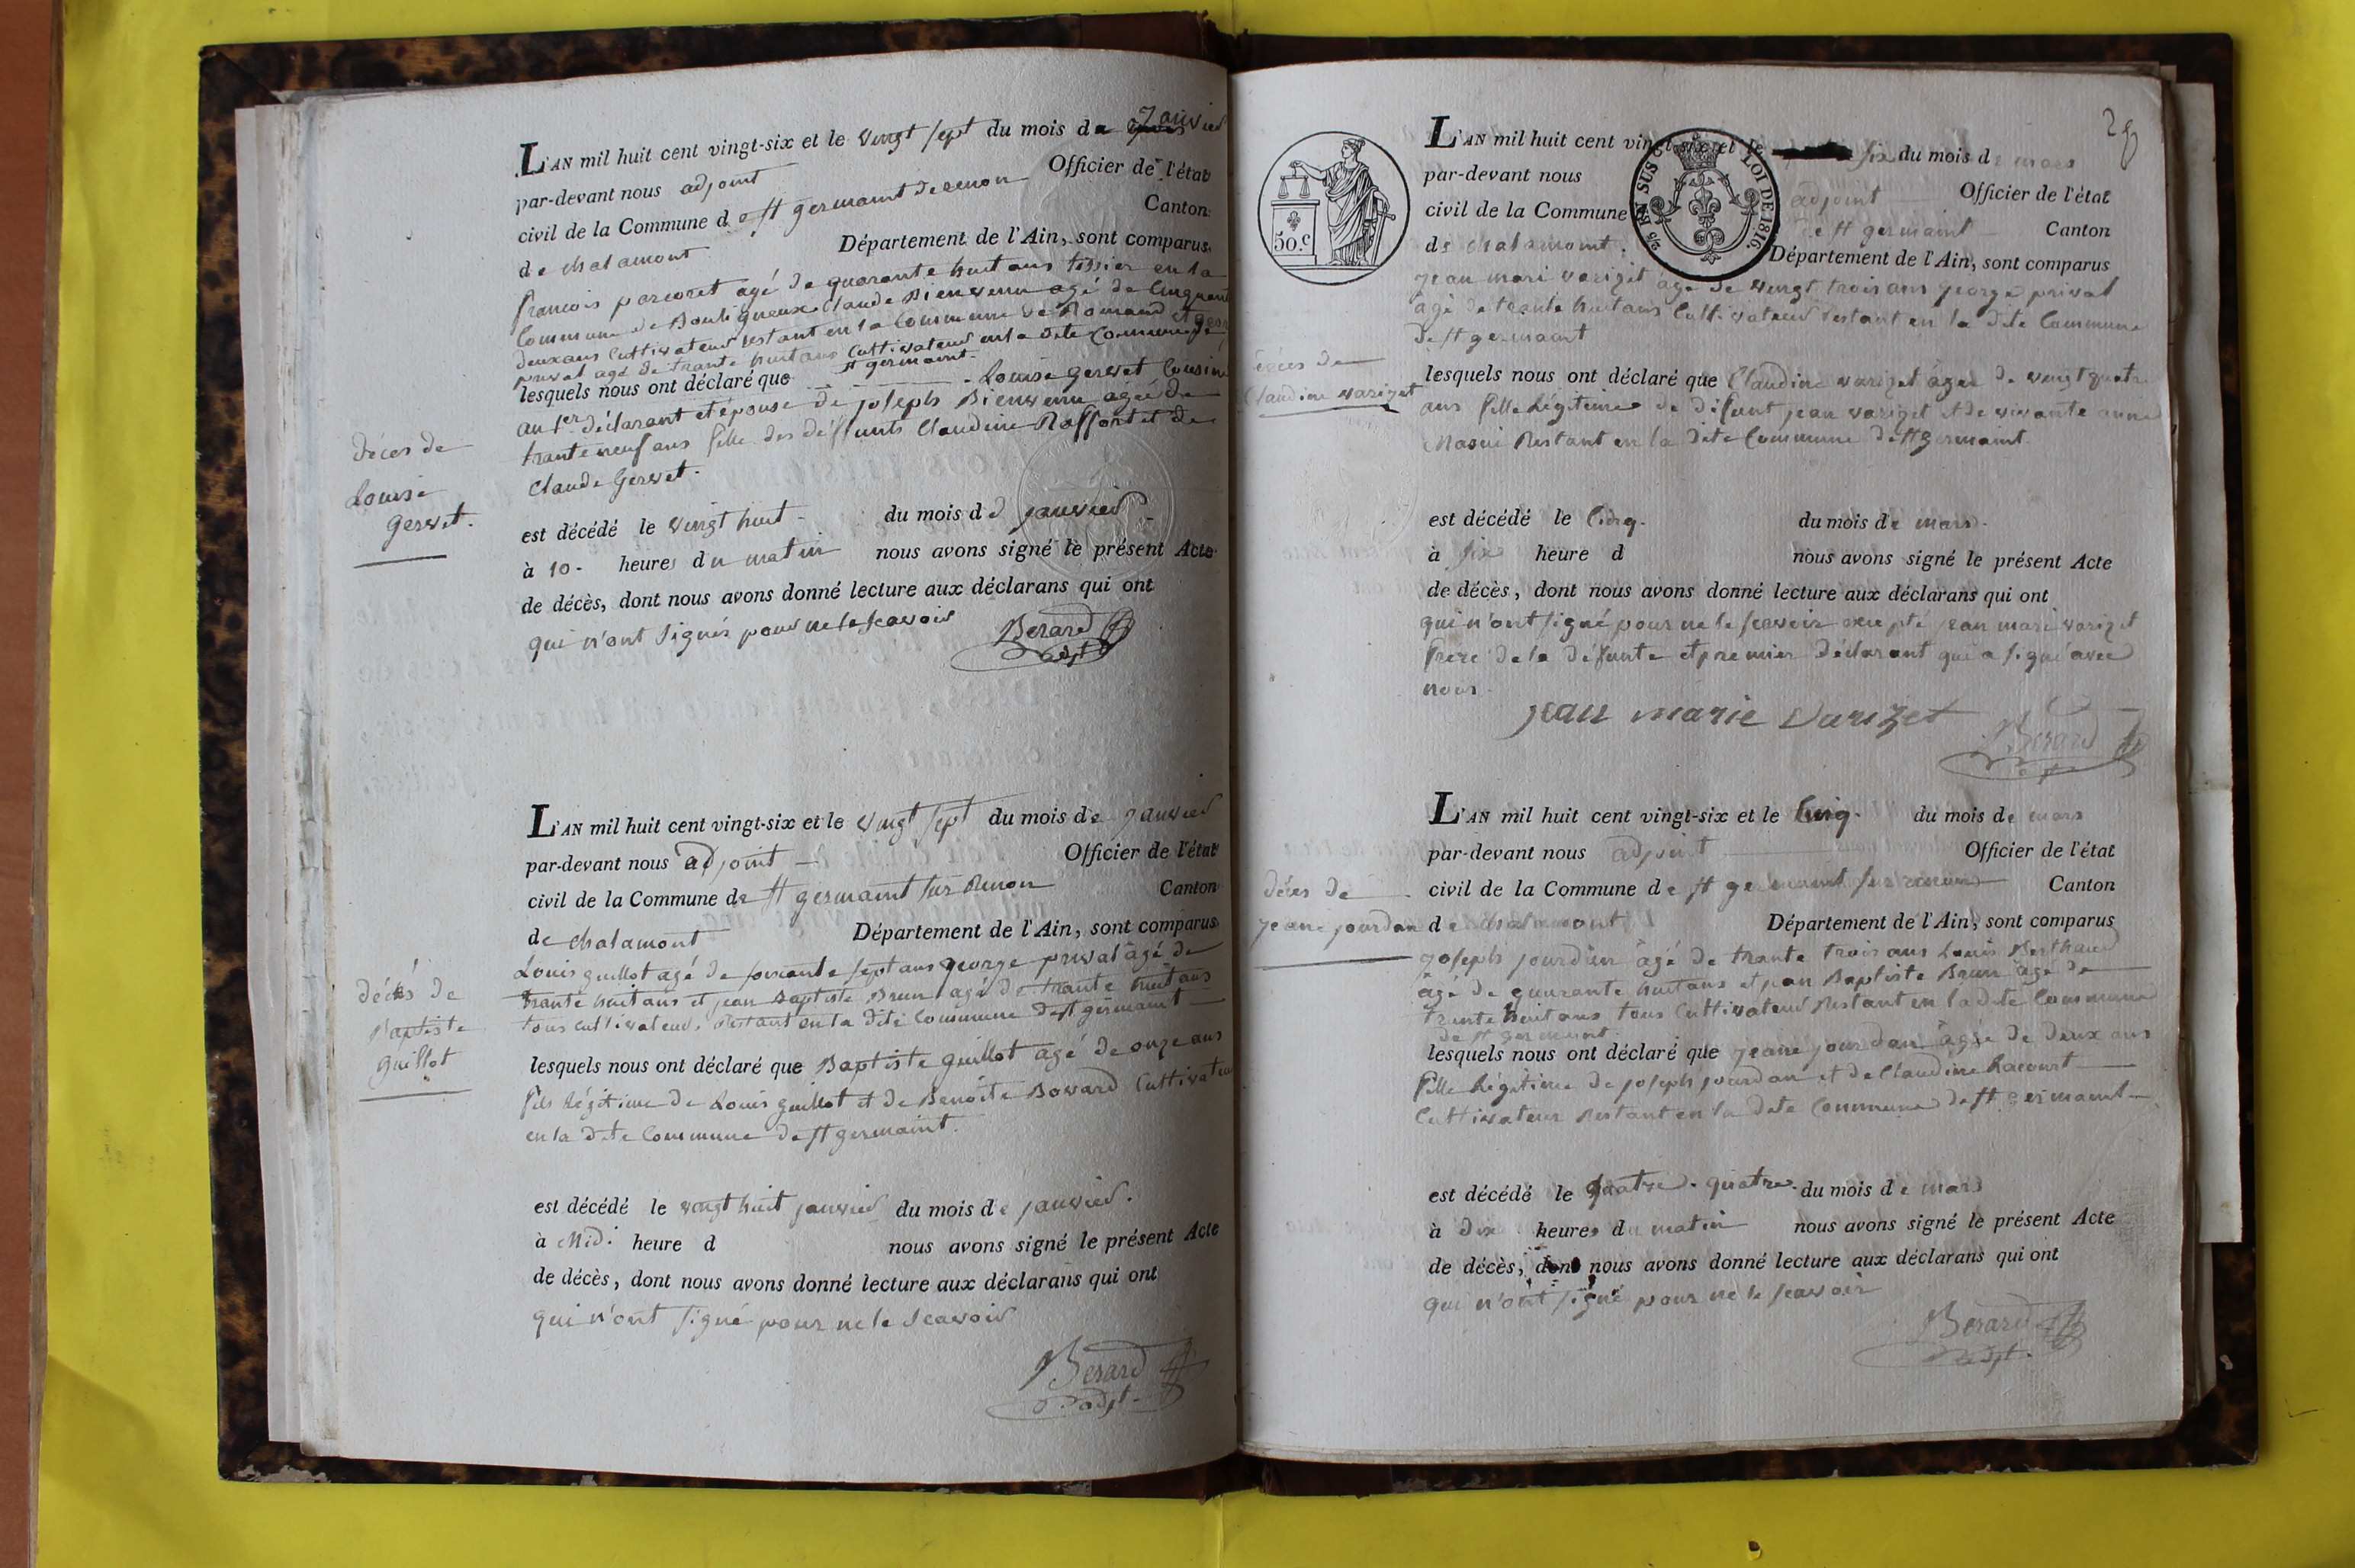 L'AN mil huit cent vingt-six et le vingt sept du mois de janvier
par-devant nous adjoint Officier de l'état
civil de la Commune de st germaint de renon Canton
de chalamont Département de l'Ain, sont comparus
francois agé de quarante huit ans tissier en la
Commune de Bouligneux Claude Bienvenu agé de Cinquante
deux ans Cultivateur restant en la Commune de Romand et george
privat agé de trante huit ans Cultivateur en la dite Commune de
st germaint.
lesquels nous ont déclaré que Louise gervet Cousine
au 1er déclarant et épouse de joseph Bienvenu agée de
trante neuf ans fille des deffunts Claudine Raffort et de
Claude Gervet.
décès de
Louise
gervet.
est décédé le vingt huit du mois de janvier
à 10 heures du matin nous avons signé le présent Acte
de décès, dont nous avons donné lecture aux déclarans qui ont
qui n'ont signés pour ne le scavoir
Berard
adjt
L'AN mil huit cent vingt-six et le vingt sept du mois de janvier
par-devant nous adjoint Officier de l'état
civil de la Commune de st germaint sur Renon Canton
de chalamont Département de l'Ain, sont comparus
Louis guillot agé de soixante sept ans george privat agé de
trante huit ans et jean Baptiste Brun agé de trante huit ans
tous cultivateur, Restant en la dite Commune de st germaint
décès de
Baptiste
guillot
lesquels nous ont déclaré que Baptiste guillot agé de onze ans
fils légitime de Louis guillot et de Benoite Bovard Cultivateur
en la dite Commune de st germaint.
est décédé le vingt huit janvier du mois de janvier.
à Midi heure d nous avons signé le présent Acte
de décès, dont nous avons donné lecture aux déclarans qui ont
qui n'ont signé pour ne le scavoir
Berard
adjt
28
50.c
2/5 EN SUS LOI DE 1816.
L'AN mil huit cent vingt-six et le six du mois de mars
par-devant nous adjoint Officier de l'état
civil de la Commune de st germaint Canton
de chalamont. Département de l'Ain, sont comparus
jean mari varizet agé de vingt trois ans george privat
agé de trante huit ans Cultivateur restant en la dite Commune
de st germaint
décès de
Claudine varizet
lesquels nous ont déclaré que Claudine varizet âgée de vingt quatre
ans fille légitime de défunt jean varizet et de vivante anne
Restant en la dite Commune de st germaint.
est décédé le Cinq. du mois de mars.
à six heure d nous avons signé le présent Acte
de décès, dont nous avons donné lecture aux déclarans qui ont
qui n'ont signé pour ne le scavoir excepté jean mari varizet
frere de la défunte et premier déclarant qui a signé avec
nous
jean marie varizet
Berard
L'AN mil huit cent vingt-six et le Cinq. du mois de mars
par-devant nous adjoint Officier de l'état
civil de la Commune de st germaint sur renon Canton
de chalamont Département de l'Ain, sont comparus
décès de
jeane jourdan
joseph jourdan âgé de trante trois ans Louis Berthaud
âgé de quarante huit ans et jean Baptiste Brun agé de
trante huit ans tous Cultivateur Restant en la dite Commune
de st germaint.
lesquels nous ont déclaré que jeane jourdan âgée de deux ans
fille légitime de joseph jourdan et de Claudine Lacourt
Cultivateur Restant en la dite Commune de st germaint
est décédé le quatre. quatre. du mois de mars
à dix heures du matin nous avons signé le présent Acte
de décès, dont nous avons donné lecture aux déclarans qui ont
qui n'ont signé pour ne le scavoir
Berard
adjt.